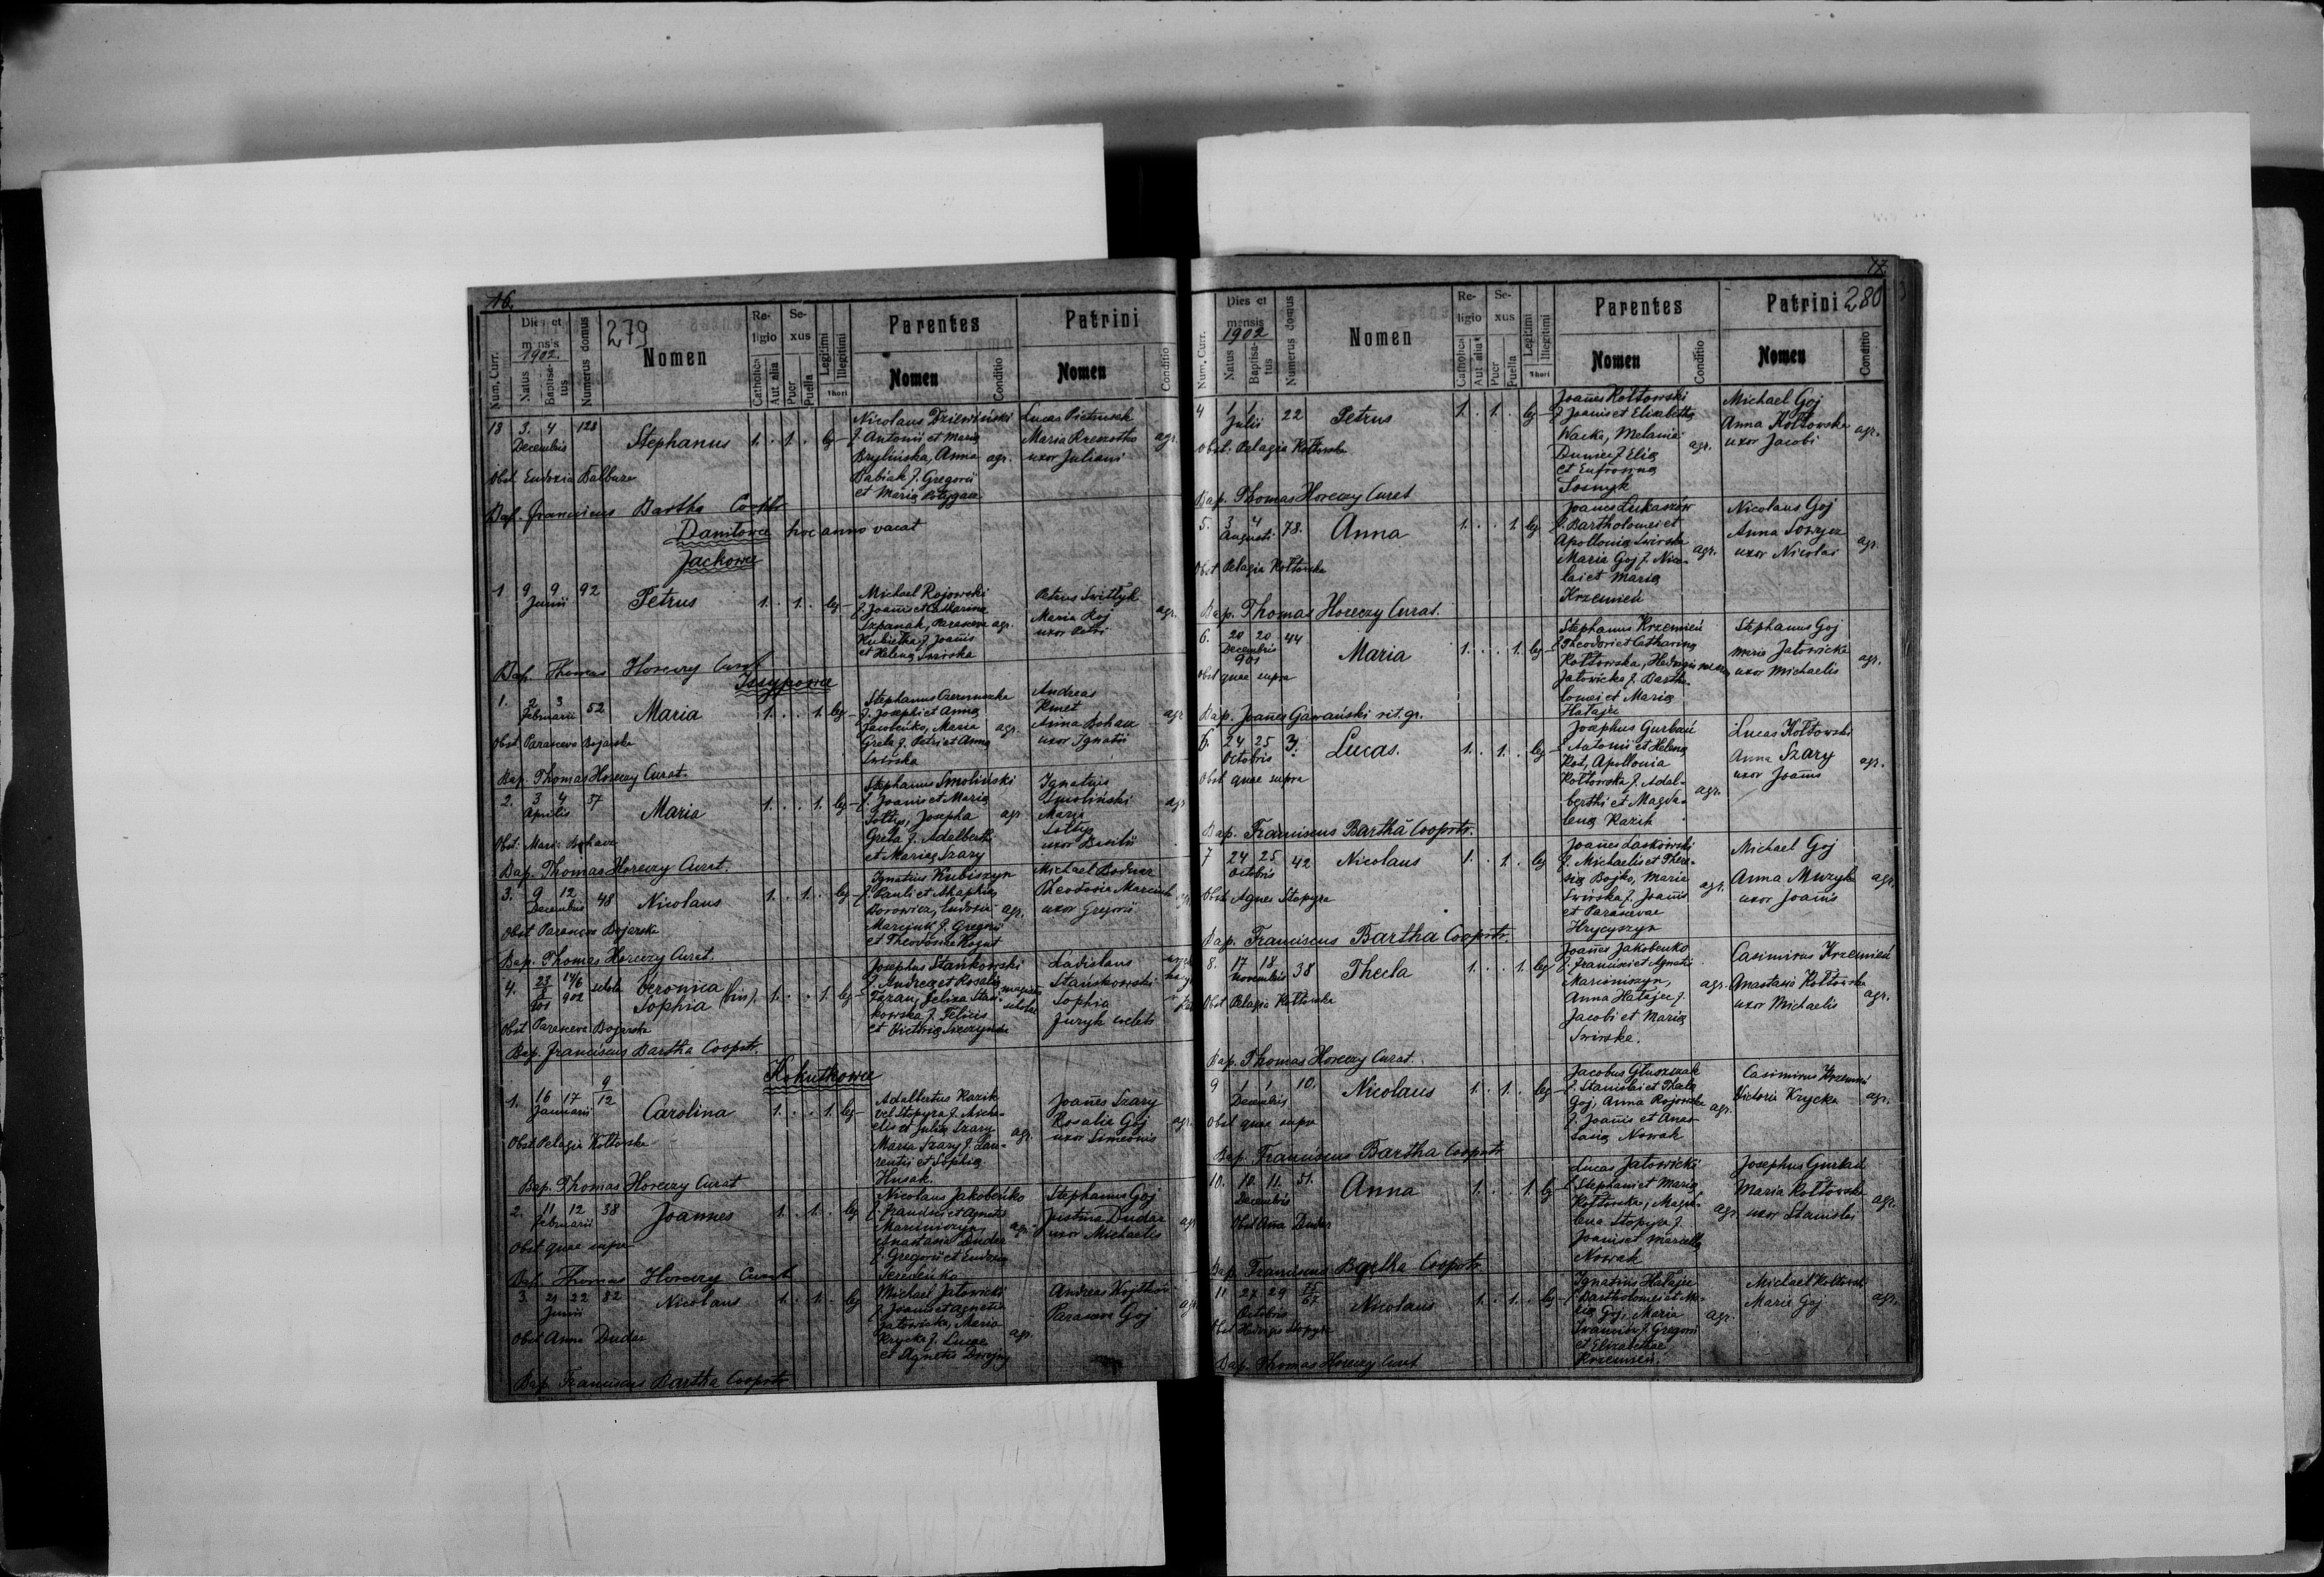 16.
279
Num. Curr.
Dies et mensis
1902.
Natus
Baptisatus
Numerus domus
Nomen
Religio
Catholica
Aut alia
Sexus
Puer
Puella
Legitimi
Illegitimi
Thori
Parentes
Nomen
Conditio
Patrini
Nomen
Conditio
18 3. 4 128 Stephanus 1. . 1. . leg
Decembris
Nicolaus Dziewiński
f. Antonii et Maria
Brylińska, Anna agr.
Babiak f. Gregorii
et Maria
Lucas Pietruszak
Maria
uxor Juliani
agr.
Obst. Eudoxia Balbuza
Bap. Franciscus Bartha Cooptr
Daniłowce hoc anno vacat
Jackowce
1 9 9 92 Petrus 1. . 1. . leg
Junii
Michael Rojowski
f. Joannis et Catharina
Szpanak, Parasceva agr.
Kubietka f. Joannis
et Helena Swirska
Petrus Switłyk
Maria Roj
uxor Petri
agr.
Bap. Thomas Horeczy Curat
Jezupowce
1. 2 3 52 Maria 1. . . 1. leg
Februarii
Stephanus
f. Josephi et Anna
Jacobenko, Maria agr.
Grela f. Petri et Anna
Swirska
Andreas
Kmet
Anna Bohacz
uxor Ignatii
agr
Obst. Parasceva Bojarska
Bap. Thomas Horeczy Curat.
2. 3 4 37 Maria 1. . . 1. leg
Aprilis
Stephanus Smoliński
f. Joannis et Maria
Sołtys, Josepha agr.
Grela f. Adalberti
et Maria Szary
Ignatius
Smoliński
Maria
Sołtys
uxor Basilii
agr
Obst. Maria Bohacz
Bap. Thomas Horeczy Curat.
3. 9 12 48 Nicolaus 1. . 1. . leg
Decembris
Ignatius Kubiszyn
f. Pauli et Ahaphia
Borowicz, Eudoxia agr.
Marciuk f. Gregorii
et Theodosia Kogut
Michael Bodnar
Theodosia Marciuk
uxor Gregorii
Obst Parasceva Bojarska
Bap. Thomas Horeczy Curat.
4. 23 14/6 schola Veronica
901 902 Sophia (bin) 1. . . 1. leg
Josephus Stańkowski
f. Andreae et Rosalia
Taran, Feliza Stań-
kowska f. Felicis
et Victoria
magister
scholae
Ladislaus
Stańskowski
Sophia
Juryk celebs
Obst Parasceva Bojarska
Bap. Franciscus Bartha Cooptr.
Kokutkowce
1. 16 17 9/12 Carolina 1. . . 1. leg
Januarii
Adalbertus Kazik
vel Stopyra f. Micha-
elis et Julia Szary
Maria Szary f. Lau-
rentii et Sophia
Husak.
agr.
Joannes Szary
Rosalia Goj
uxor Simeonis
agr.
Obst Pelagia Kołtowska
Bap. Thomas Horeczy Curat
2. 11 12 38 Joannes 1. . 1. . leg
Februarii
Nicolaus Jakobenko
f. Francisci et Agnetis
Marciniszyn,
Anastasia Dudar
f. Gregorii et Eudoxia
Seredeńko
agr.
Stephanus Goj
Justina Dudar
uxor Michaelis
agr
Obst quae supra
Bap. Thomas Horeczy Curat
3. 21 22 82 Nicolaus 1. . 1. . leg
Junii
Michael Jatowicki
f. Joannis et Agnetis
Jatowicka, Maria
Krycka f. Lucae
et Agnetis
agr.
Andreas
Parasceva Goj
agr
Obst Anna Dudar
Bap. Franciscus Bartha Cooptr
17.
280
Num. Curr.
Dies et mensis
1902
Natus
Baptisatus
Numerus domus
Nomen
Religio
Catholica
Aut alia
Sexus
Puer
Puella
Legitimi
Illegitimi
Thori
Parentes
Nomen
Conditio
Patrini
Nomen
Conditio
4 1 1 22 Petrus 1. . 1. . leg
Julii
Joannes Kołtowski
f. Joannis et Elisabetha
Wacka, Melania
f. Elia
et Eufrosina
Sosnyk
agr.
Michael Goj
Anna Kołtowska
uxor Jacobi
agr.
Obst: Pelagia Kołtowska
Bap. Thomas Horeczy Curat
5. 3 4 78. Anna 1. . . 1. leg
Augusti
Joannes Lukaszów
f. Bartholomei et
Apollonia Swirska
Maria Goj f. Nico-
lai et Maria
Krzemień
agr.
Nicolaus Goj
Anna
uxor Nicolai
agr.
Obst Pelagia Kołtowska
Bap. Thomas Horeczy Curat.
6. 20 20 44 Maria 1. . . 1. leg
Decembris
901
Stephanus Krzemień
f. Theodori et Catharina
Kołtowska, Hedvigis
Jatowicka f. Bartho-
lomei et Maria
Hałajec
Stephanus Goj
Maria Jatowicka
uxor Michaelis
agr.
Obst quae supra
Bap. Joannes Gawański rit. gr.
6. 24 25 3. Lucas. 1. . 1. . leg
Octobris
Josephus Gurbań
f. Antonii et Helena
Kot, Apollonia
Kołtowska f. Adal-
berthi et Magda-
lena Kazik
agr.
Lucas Kołtowski
Anna Szary
uxor Joannis
agr.
Obst quae supra
Bap. Franciscus Bartha Cooptr.
7 24 25 42 Nicolaus 1. . 1. . leg
Octobris
Joannes Laskowski
f. Michaelis et There-
sia Bojko, Maria
Swirska f. Joannis
et Parascevae
Hrycyszyn
agr.
Michael Goj
Anna Muzyka
uxor Joannis
agr.
Obst Agnes Stopyra
Bap. Franciscus Bartha Cooptr.
8. 17 18 38 Thecla 1. . . 1. leg
Novembris
Joannes Jakobenko
f. Francisci et Agnetis
Marciniszyn,
Anna Hałajec f.
Jacobi et Maria
Swirska.
agr.
Casimirus Krzemień
Anastasia Kołtowska
uxor Michaelis
agr.
Obst Pelagia Kołtowska
Bap. Thomas Horeczy Curat.
9 1 1 10. Nicolaus 1. . 1. . leg
Decembris
Jacobus Głuszczak
f. Stanislai et Thecla
Goj, Anna Rojowska
f. Joannis et Anas-
tasia Nowak
agr.
Casimirus Krzemień
Victoria Krycka
agr.
Obst quae supra
Bap. Franciscus Bartha Cooptr
10. 10. 11. 51. Anna 1. . . 1. leg
Decembris
Lucas Jatowicki
f. Stephani et Maria
Kołtowska, Magda-
lena Stopyra f.
Joannis et Marcella
Nowak
agr.
Josephus Gurbań
Maria Kołtowska
uxor Stanislai
agr.
Obst Anna Dudar
Bap. Franciscus Bartha Cooptr.
11 27 29 Nicolaus 1. . 1. . leg
Octobris
Ignatius Hałajec
f. Bartholomei et
Goj, Maria
f. Gregorii
et Elizabethae
Krzemień.
agr.
Michael Kołtowski
Maria Goj
agr.
Obst Hedvigis Stopyra
Bap. Thomas Horeczy Curat